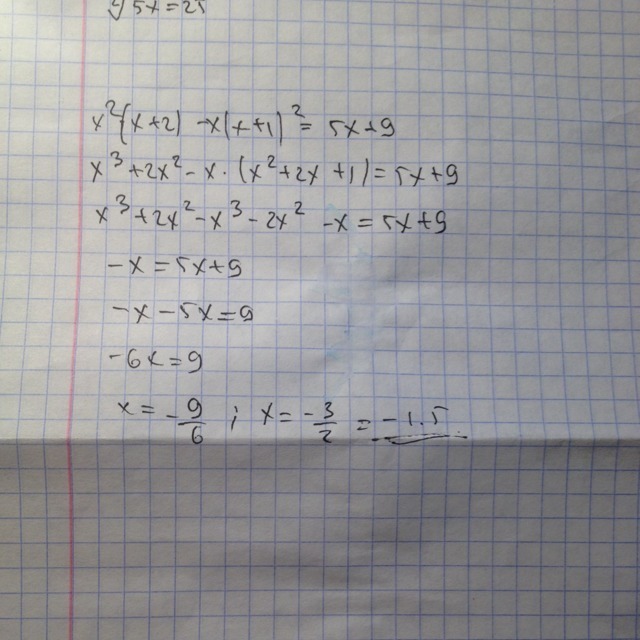 x²(x+2) -x(x+1)² = 5x+9
x³+2x²-x·(x²+2x+1)=5x+9
x³+2x²-x³-2x² -x=5x+9
-x=5x+9
-x-5x=9
-6x=9
x=-9/6 ; x=-3/2 = -1.5